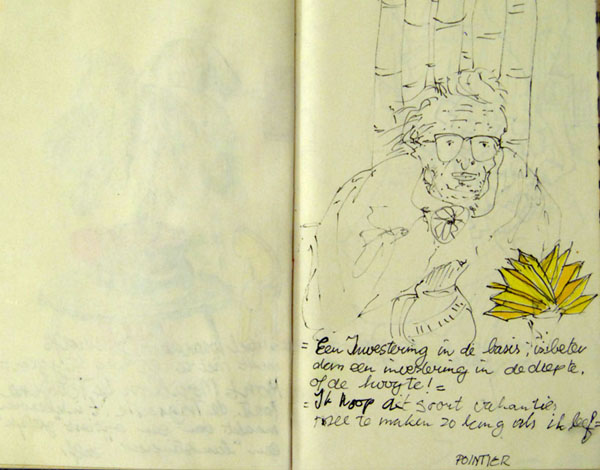 = Een Investering in de basis, is beter
dan een investering in de diepte,
of de hoogte! =
= Ik hoop dit soort vakanties
mee te maken zo lang als ik leef =
POINTIER